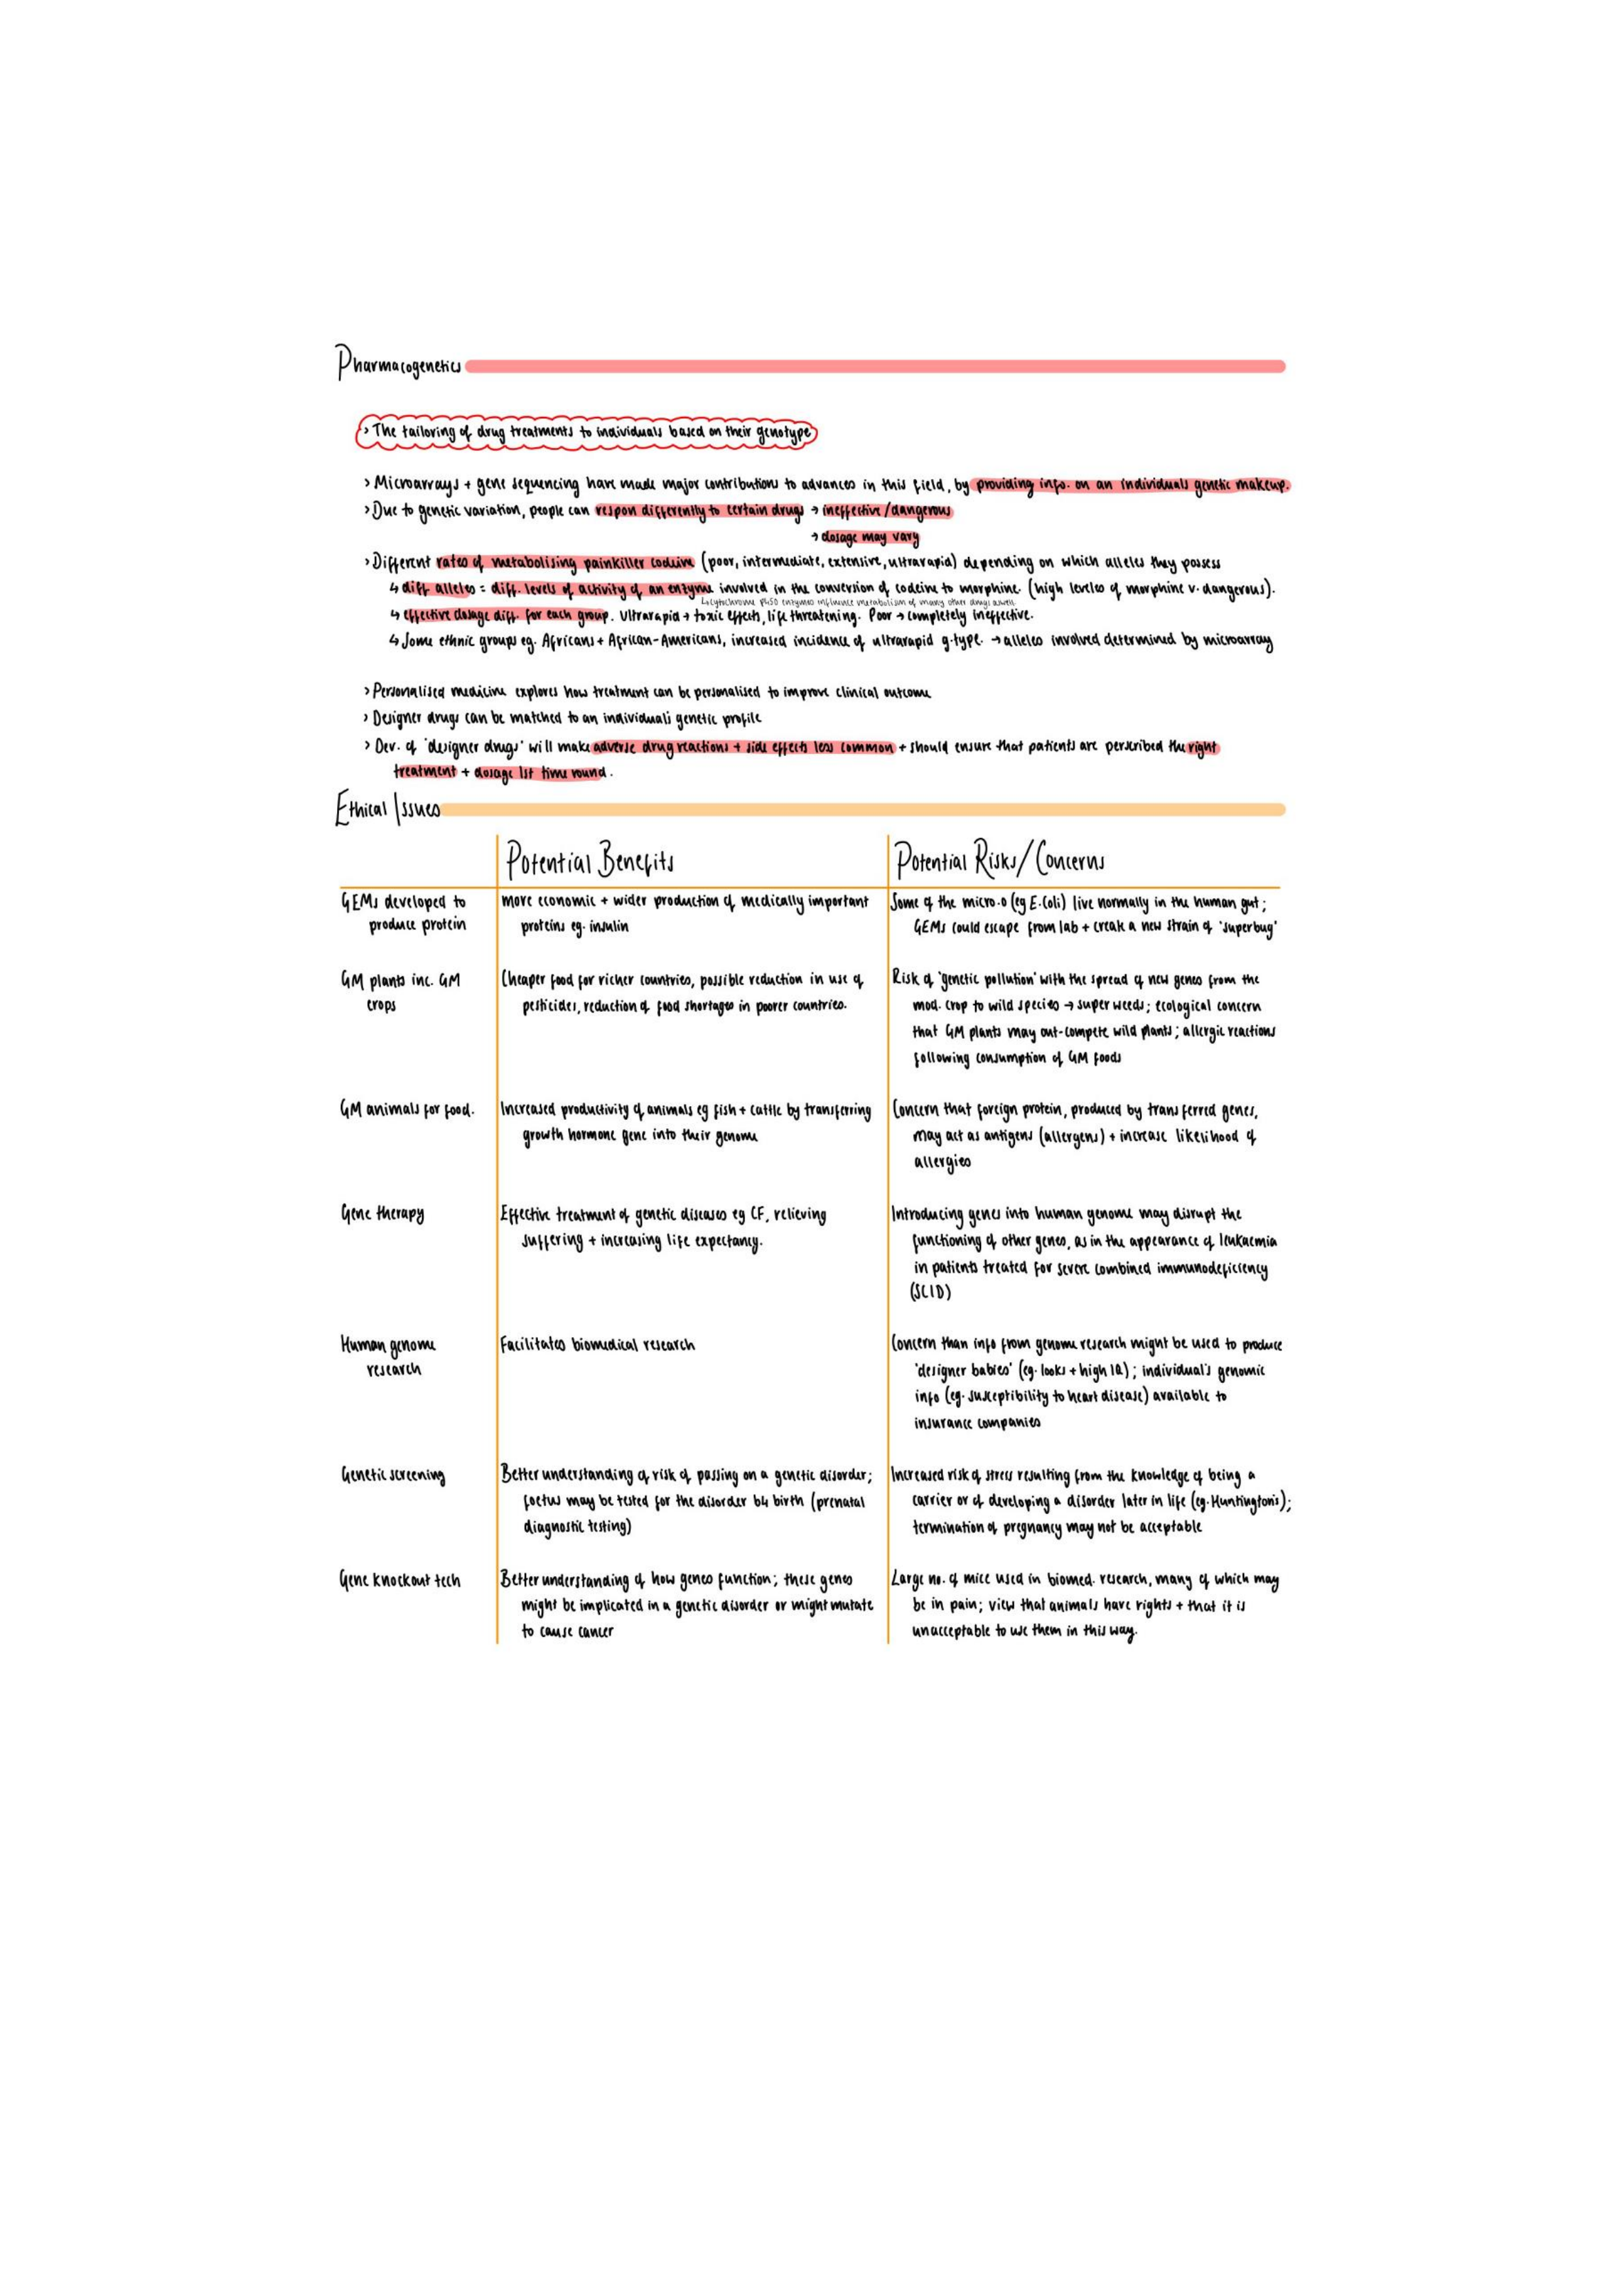 Pharmacogenetics
> The tailoring of drug treatments to individuals based on their genotype
> Microarrays + gene sequencing have made major contributions to advances in this field, by providing info. on an individuals genetic makeup.
> Due to genetic variation, people can respon differently to certain drugs → ineffective/dangerous
→ dosage may vary
> Different rates of metabolising painkiller codeine (poor, intermediate, extensive, ultrarapid) depending on which alleles they possess
↳ diff alleles = diff. levels of activity of an enzyme involved in the conversion of codeine to morphine. (high levels of morphine v. dangerous).
↳ cytochrome P450 enzymes influence metabolism of many other drugs aswell
↳ effective dosage diff. for each group. Ultrarapid → toxic effects, life threatening. Poor → completely ineffective.
↳ Some ethnic groups eg. Africans + African-Americans, increased incidence of ultrarapid g-type. → alleles involved determined by microarray
> Personalised medicine explores how treatment can be personalised to improve clinical outcome
> Designer drugs can be matched to an individual's genetic profile
> Dev. of 'designer drugs' will make adverse drug reactions + side effects less common + should ensure that patients are perscribed the right
treatment + dosage 1st time round.
Ethical Issues
Potential Benefits
Potential Risks/Concerns
GEMs developed to
produce protein
more economic + wider production of medically important
proteins eg. insulin
Some of the micro.o (eg E.Coli) live normally in the human gut;
GEMs could escape from lab + creak a new strain of 'superbug'
GM plants inc. GM
crops
Cheaper food for richer countries, possible reduction in use of
pesticides, reduction of food shortages in poorer countries.
Risk of 'genetic pollution' with the spread of new genes from the
mod. crop to wild species → super weeds; ecological concern
that GM plants may out-compete wild plants; allergic reactions
following consumption of GM foods
GM animals for food.
Increased productivity of animals eg fish + cattle by transferring
growth hormone gene into their genome
Concern that foreign protein, produced by transferred genes,
may act as antigens (allergens) + increase likelihood of
allergies
Gene therapy
Effective treatment of genetic diseases eg CF, relieving
suffering + increasing life expectancy.
Introducing genes into human genome may disrupt the
functioning of other genes, as in the appearance of leukaemia
in patients treated for severe combined immunodeficiency
(SCID)
Human genome
research
Facilitates biomedical research
Concern than info from genome research might be used to produce
'designer babies' (eg. looks + high IQ); individual's genomic
info (eg. susceptibility to heart disease) available to
insurance companies
Genetic screening
Better understanding of risk of passing on a genetic disorder;
foetus may be tested for the disorder b4 birth (prenatal
diagnostic testing)
Increased risk of stress resulting from the knowledge of being a
carrier or of developing a disorder later in life (eg. Huntington's);
termination of pregnancy may not be acceptable
Gene knockout tech
Better understanding of how genes function; these genes
might be implicated in a genetic disorder or might mutate
to cause cancer
Large no. of mice used in biomed. research, many of which may
be in pain; view that animals have rights + that it is
unacceptable to use them in this way.